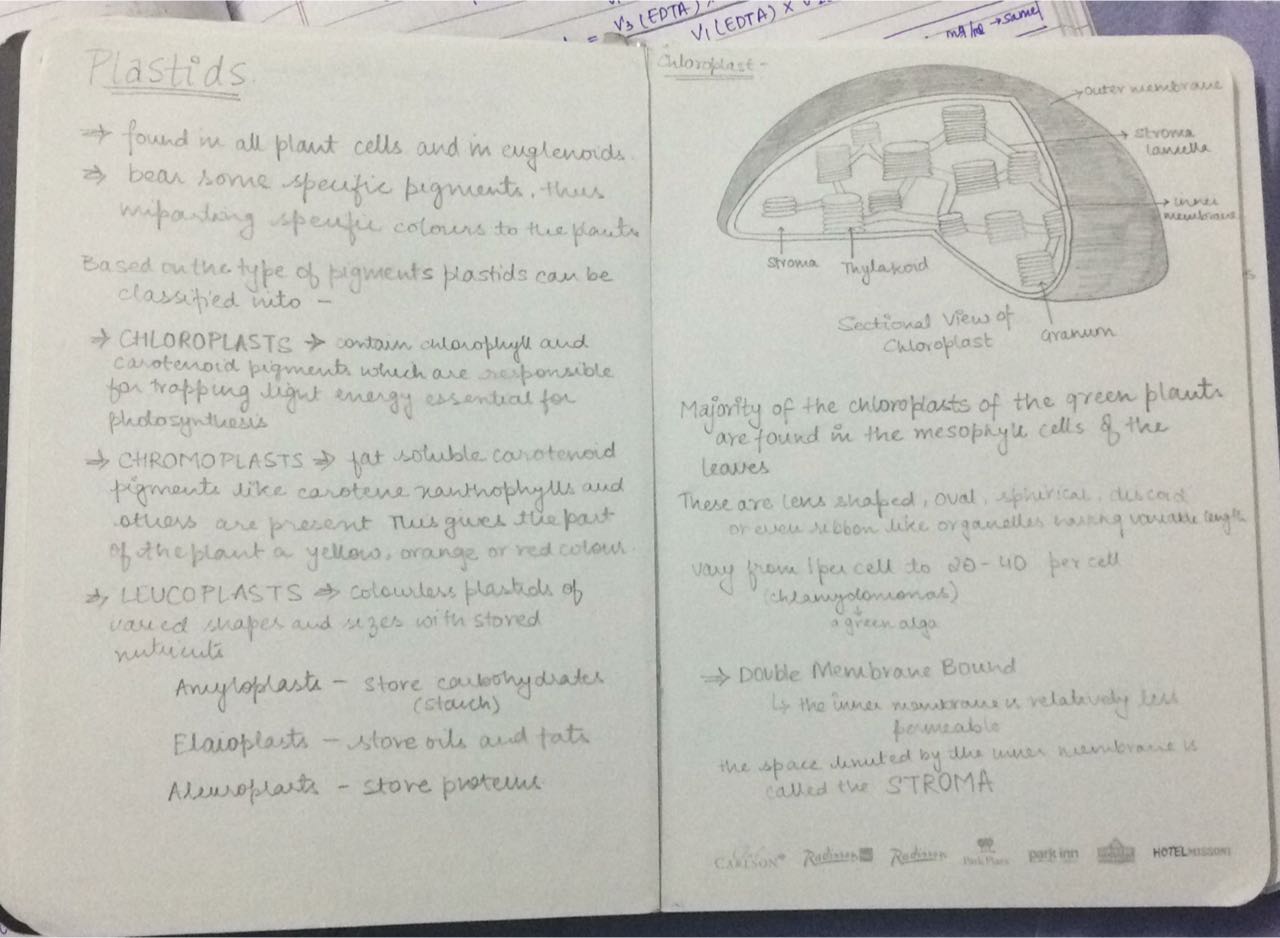 V3 (EDTA)
V1 (EDTA) ×
→ same
Plastids.
⇒ found in all plant cells and in euglenoids.
⇒ bear some specific pigments, thus
imparting specific colours to the plants
Based on the type of pigments plastids can be
classified into –
→ CHLOROPLASTS → contain chlorophyll and
carotenoid pigments which are responsible
for trapping light energy essential for
photosynthesis
⇒ CHROMOPLASTS ⇒ fat soluble carotenoid
pigments like carotene xanthophylls and
others are present This gives the part
of the plant a yellow, orange or red colour.
⇒ LEUCOPLASTS ⇒ colourless plastids of
varied shapes and sizes with stored
nutrients
Amyloplasts – store carbohydrates
(starch)
Elaioplasts – store oils and fats
Aleuroplasts – store proteins
Chloroplast –
outer membrane
stroma
lamella
inner
membrane
Stroma
Thylakoid
Granum
Sectional View of
Chloroplast
Majority of the chloroplasts of the green plants
are found in the mesophyll cells of the
leaves
These are lens shaped, oval, spherical, discoid
or even ribbon like organelles having variable length
vary from 1 per cell to 20-40 per cell
(chlamydomonas)
a green alga
⇒ Double Membrane Bound
↳ the inner membrane is relatively less
permeable
the space limited by the inner membrane is
called the STROMA
CARLSON Radisson Radisson Park Plaza park inn HOTEL MISSONI